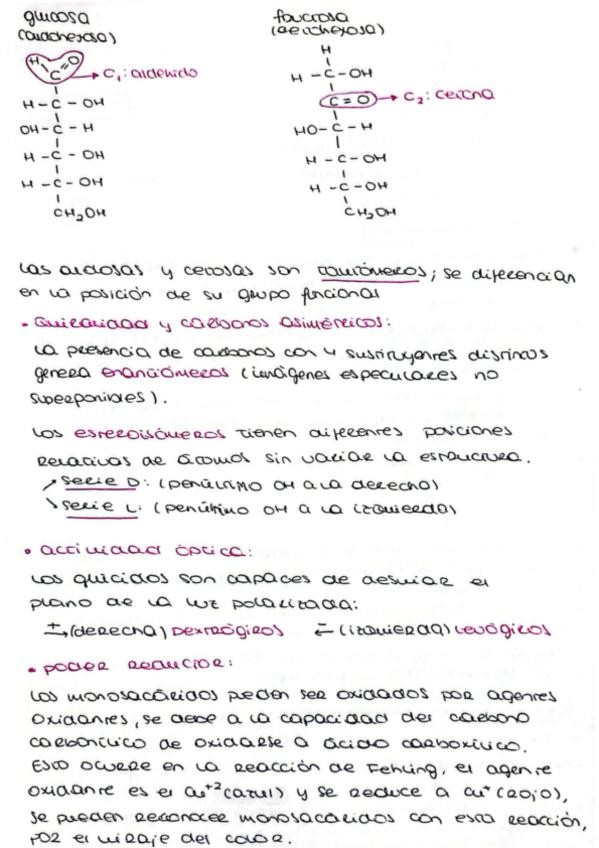 glucosa
(aldohexosa)
H O
C → C₁: aldehído
H - C - OH
OH - C - H
H - C - OH
H - C - OH
CH₂OH
fructosa
(cetohexosa)
H
H - C - OH
C = O → C₂: cetona
HO - C - H
H - C - OH
H - C - OH
CH₂OH
Las aldosas y cetosas son tautómeros; se diferencian
en la posición de su grupo funcional
• Quiralidad y carbonos asimétricos:
La presencia de carbonos con 4 sustituyentes distintos
genera enanciómeros (imágenes especulares no
superponibles).
Los estereoisómeros tienen diferentes posiciones
relativas de átomos sin variar la estructura.
↗ Serie D: (penúltimo OH a la derecha)
↘ Serie L: (penúltimo OH a la izquierda)
• actividad óptica:
Los glúcidos son capaces de desviar el
plano de la luz polarizada:
+→ (derecha) Dextrógiros ←- (izquierda) Levógiros
• poder reductor:
Los monosacáridos pueden ser oxidados por agentes
oxidantes, se debe a la capacidad del carbono
carbonílico de oxidarse a ácido carboxílico.
Esto ocurre en la reacción de Fehling, el agente
oxidante es el Cu⁺² (azul) y se reduce a Cu⁺ (rojo),
se pueden reconocer monosacáridos con esta reacción,
por el viraje del color.